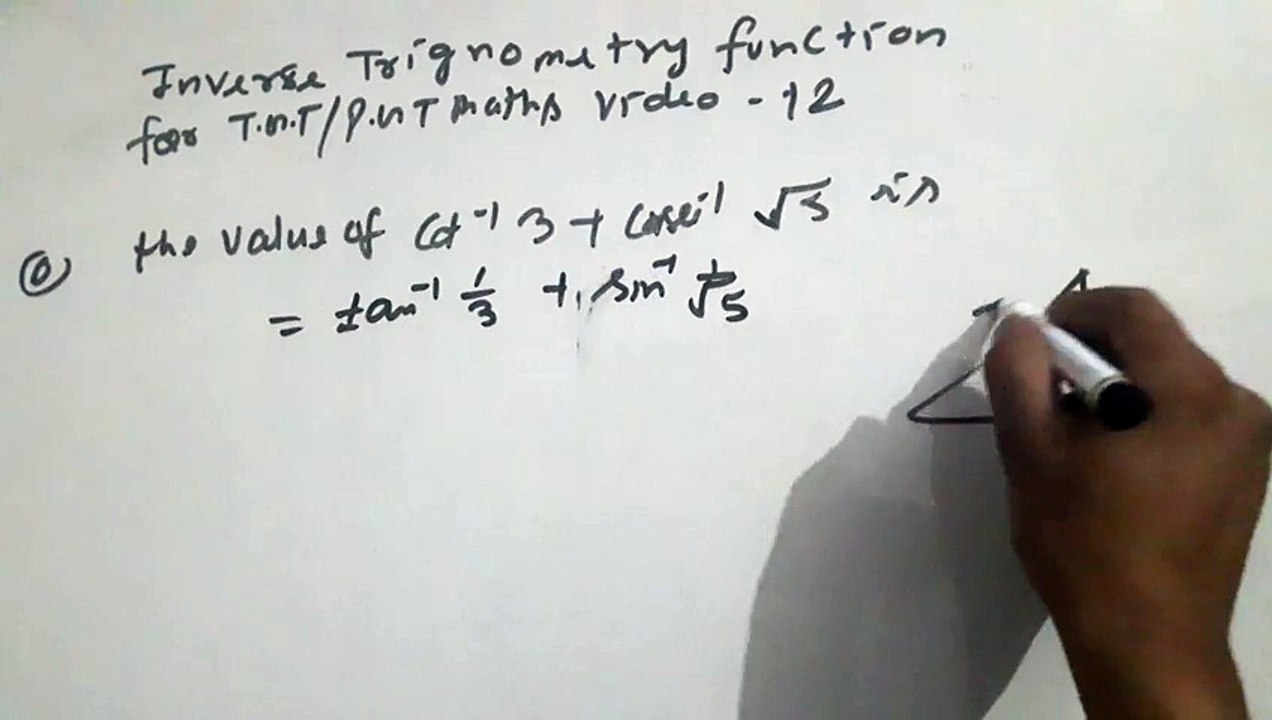 Inverse Trignometry function
for T.N.T/P.N T maths video - 12
Q the value of Cot⁻¹ 3 + Cosec⁻¹ √5 is
= tan⁻¹ 1/3 + sin⁻¹ 1/√5